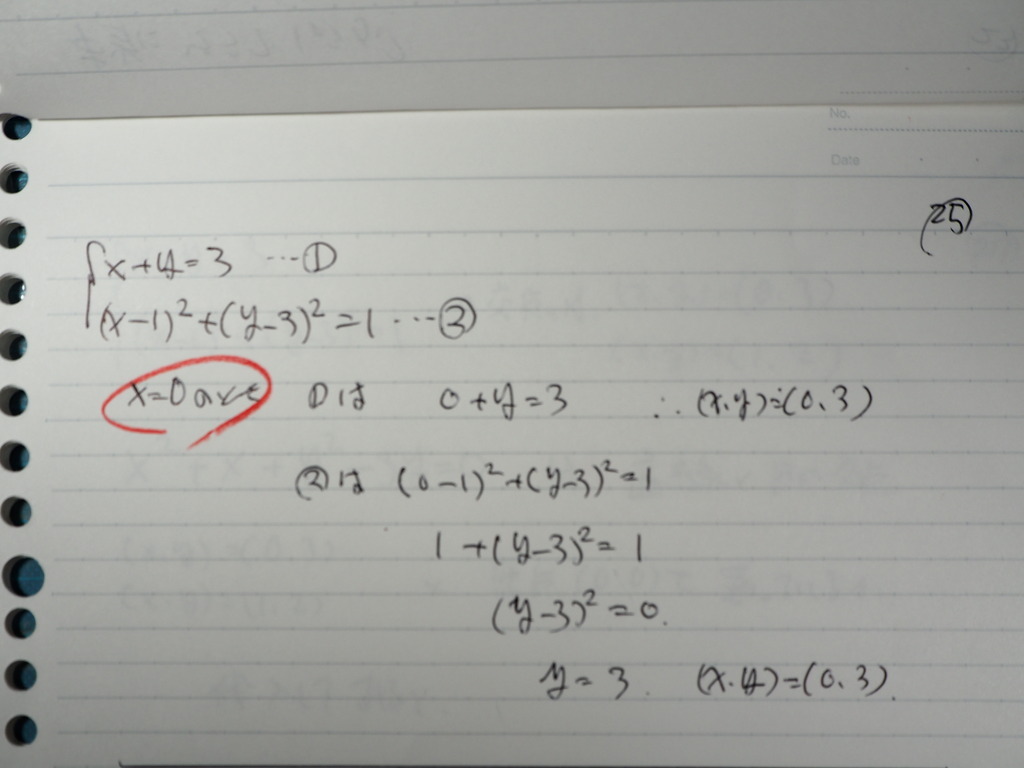 No.
Date
(25)
{x+y=3 …①
(x-1)²+(y-3)²=1 …②
x=0のとき ①は 0+y=3 ∴(x,y)=(0,3)
②は (0-1)²+(y-3)²=1
1+(y-3)²=1
(y-3)²=0.
y=3. (x,y)=(0,3).